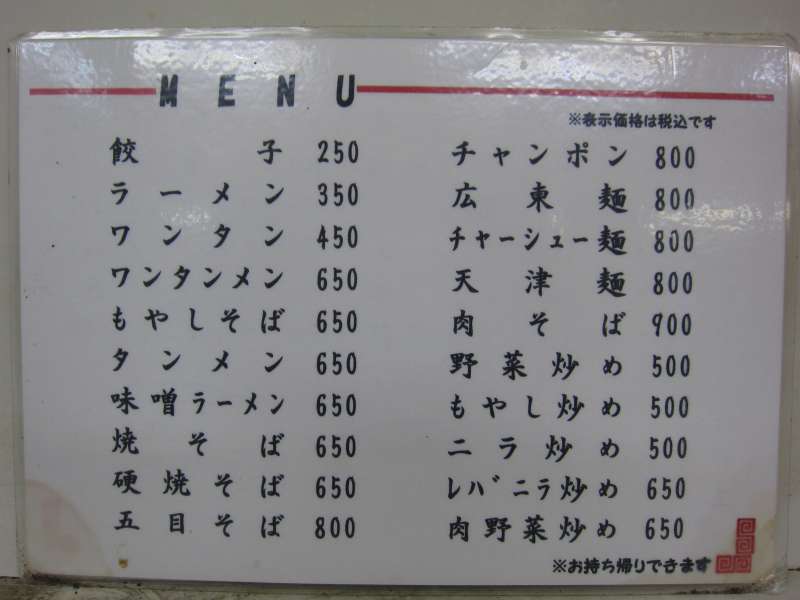 MENU
※表示価格は税込です
餃子 250
ラーメン 350
ワンタン 450
ワンタンメン 650
もやしそば 650
タンメン 650
味噌ラーメン 650
焼そば 650
硬焼そば 650
五目そば 800
チャンポン 800
広東麺 800
チャーシュー麺 800
天津麺 800
肉そば 900
野菜炒め 500
もやし炒め 500
ニラ炒め 500
レバニラ炒め 650
肉野菜炒め 650
※お持ち帰りできます